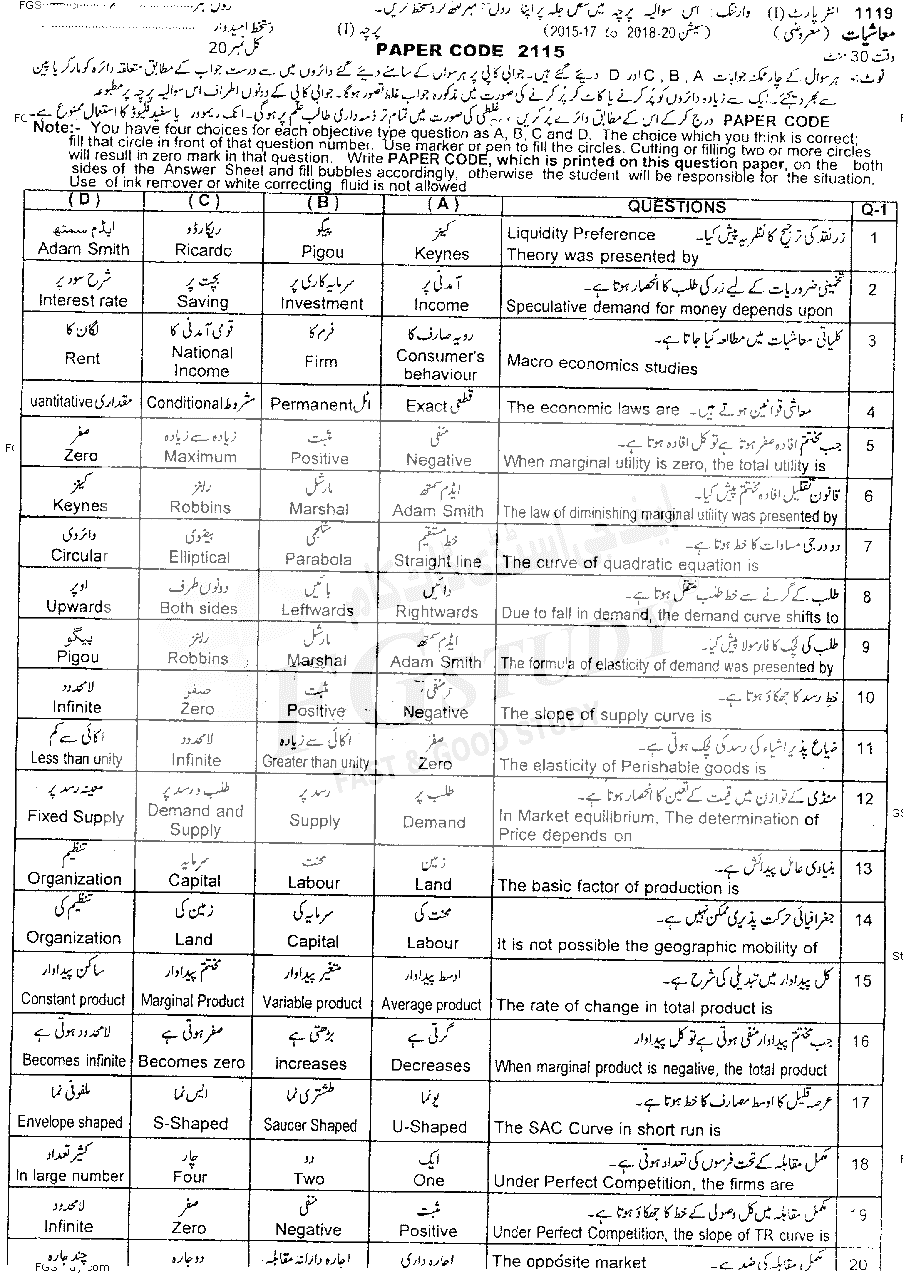 1119 انٹر پارٹ (I) وارننگ: اس سوالیہ پرچہ میں
معاشیات (معروضی) (سیشن 20-2018 to 17-2015) پرچہ (I) دستخط امیدوار
وقت 30 منٹ PAPER CODE 2115 کل نمبر 20
نوٹ:- ہر سوال کے چار ممکنہ جوابات A , B , C اور D دیئے گئے ہیں۔ جوابی کاپی پر ہر سوال کے سامنے دیئے گئے دائروں میں سے درست جواب کے مطابق متعلقہ دائرہ کو مارکر یا پین
سے بھر دیجئے۔ ایک سے زیادہ دائروں کو پُر کرنے یا کاٹ کر پُر کرنے کی صورت میں مذکورہ جواب غلط تصور ہوگا۔ جوابی کاپی کے دونوں اطراف اس سوالیہ پرچہ پر مطبوعہ
PAPER CODE درج کر کے اس کے مطابق دائرے پُر کریں، غلطی کی صورت میں تمام تر ذمہ داری طالب علم پر ہوگی۔ انک ریمور یا سفید فلیوڈ کا استعمال ممنوع ہے۔
Note:- You have four choices for each objective type question as A, B, C and D. The choice which you think is correct;
fill that circle in front of that question number. Use marker or pen to fill the circles. Cutting or filling two or more circles
will result in zero mark in that question. Write PAPER CODE, which is printed on this question paper, on the both
sides of the Answer Sheet and fill bubbles accordingly, otherwise the student will be responsible for the situation.
Use of ink remover or white correcting fluid is not allowed
( D ) ( C ) ( B ) ( A ) QUESTIONS Q-1
ایڈم سمتھ ریکارڈو پیگو کینز زر نقد کی ترجیح کا نظریہ پیش کیا۔
Adam Smith Ricardo Pigou Keynes Liquidity Preference Theory was presented by 1
شرح سود پر بچت پر سرمایہ کاری پر آمدنی پر تخمینی ضروریات کے لیے زر کی طلب کا انحصار ہوتا ہے۔
Interest rate Saving Investment Income Speculative demand for money depends upon 2
لگان کا قومی آمدنی کا فرم کا رویہ صارف کا کلیاتی معاشیات میں مطالعہ کیا جاتا ہے۔
Rent National Income Firm Consumer's behaviour Macro economics studies 3
uantitative مقداری Conditional مشروط Permanent اٹل Exact قطعی The economic laws are معاشی قوانین ہوتے ہیں۔ 4
صفر زیادہ سے زیادہ مثبت منفی جب مختتم افادہ صفر ہوتا ہے تو کل افادہ ہوتا ہے۔
Zero Maximum Positive Negative When marginal utility is zero, the total utility is 5
کینز رابنز مارشل ایڈم سمتھ قانون تقلیل افادہ مختتم پیش کیا۔
Keynes Robbins Marshal Adam Smith The law of diminishing marginal utility was presented by 6
دائروی بیضوی شلجمی خط مستقیم دو درجی مساوات کا خط ہوتا ہے۔
Circular Elliptical Parabola Straight line The curve of quadratic equation is 7
اوپر دونوں طرف بائیں دائیں طلب کے گرنے سے خط طلب منتقل ہوتا ہے۔
Upwards Both sides Leftwards Rightwards Due to fall in demand, the demand curve shifts to 8
پیگو رابنز مارشل ایڈم سمتھ طلب کی لچک کا فارمولا پیش کیا۔
Pigou Robbins Marshal Adam Smith The formula of elasticity of demand was presented by 9
لامحدود صفر مثبت منفی خط رسد کا جھکاؤ ہوتا ہے۔
Infinite Zero Positive Negative The slope of supply curve is 10
اکائی سے کم لامحدود اکائی سے زیادہ صفر ضیاع پذیر اشیاء کی رسد کی لچک ہوتی ہے۔
Less than unity Infinite Greater than unity Zero The elasticity of Perishable goods is 11
معینہ رسد پر طلب و رسد پر رسد پر طلب پر منڈی کے توازن میں قیمت کے تعین کا انحصار ہوتا ہے۔
Fixed Supply Demand and Supply Supply Demand In Market equilibrium, The determination of Price depends on 12
تنظیم سرمایہ محنت زمین بنیادی عامل پیدائش ہے۔
Organization Capital Labour Land The basic factor of production is 13
تنظیم کی زمین کی سرمایہ کی محنت کی جغرافیائی حرکت پذیری ممکن نہیں ہے۔
Organization Land Capital Labour It is not possible the geographic mobility of 14
ساکن پیداوار مختتم پیداوار متغیر پیداوار اوسط پیداوار کل پیداوار میں تبدیلی کی شرح ہے۔
Constant product Marginal Product Variable product Average product The rate of change in total product is 15
لامحدود ہوتی ہے صفر ہوتی ہے بڑھتی ہے گرتی ہے جب مختتم پیداوار منفی ہوتی ہے تو کل پیداوار
Becomes infinite Becomes zero increases Decreases When marginal product is negative, the total product 16
ملفوفی نما ایس نما طشتری نما یو نما عرصہ قلیل کا اوسط مصارف کا خط ہوتا ہے۔
Envelope shaped S-Shaped Saucer Shaped U-Shaped The SAC Curve in short run is 17
کثیر تعداد چار دو ایک مکمل مقابلہ کے تحت فرموں کی تعداد ہوتی ہے۔
In large number Four Two One Under Perfect Competition, the firms are 18
لامحدود صفر منفی مثبت مکمل مقابلہ میں کل وصولی کے خط کا جھکاؤ ہوتا ہے۔
Infinite Zero Negative Positive Under Perfect Competition, the slope of TR curve is 19
چند اجارہ دو اجارہ اجارہ دارانہ مقابلہ اجارہ داری The opposite market مکمل مقابلہ کی ضد ہے۔ 20
FGSTUDY
FAST & GOOD STUDY